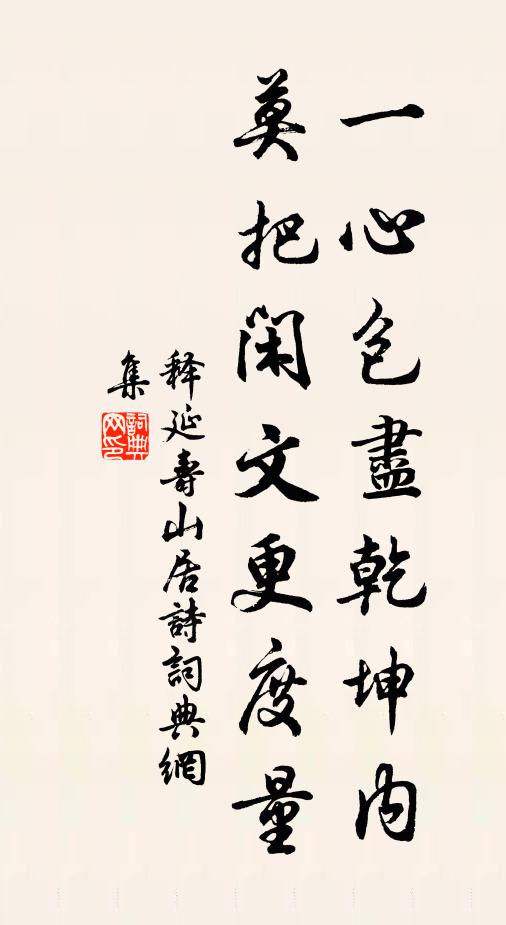 一心包盡乾坤內
莫把閑文更度量
释延壽山居詩詞典網
集
詞典
网印